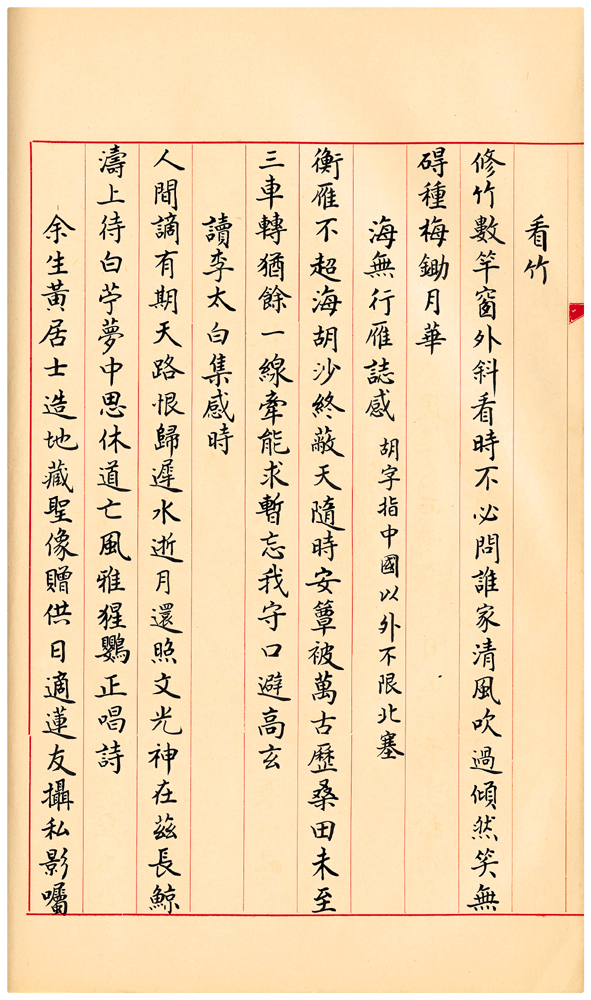 看竹
修竹數竿窗外斜看時不必問誰家清風吹過傾然笑無
碍種梅鋤月華
海無行雁誌感 胡字指中國以外不限北塞
衡雁不超海胡沙終蔽天隨時安簟被萬古歷桑田未至
三車轉猶餘一線牽能求暫忘我守口避高玄
讀李太白集感時
人間謫有期天路恨歸遲水逝月還照文光神在茲長鯨
濤上待白苧夢中思休道亡風雅猩鸚正唱詩
余生黃居士造地藏聖像贈供日適蓮友攝私影囑